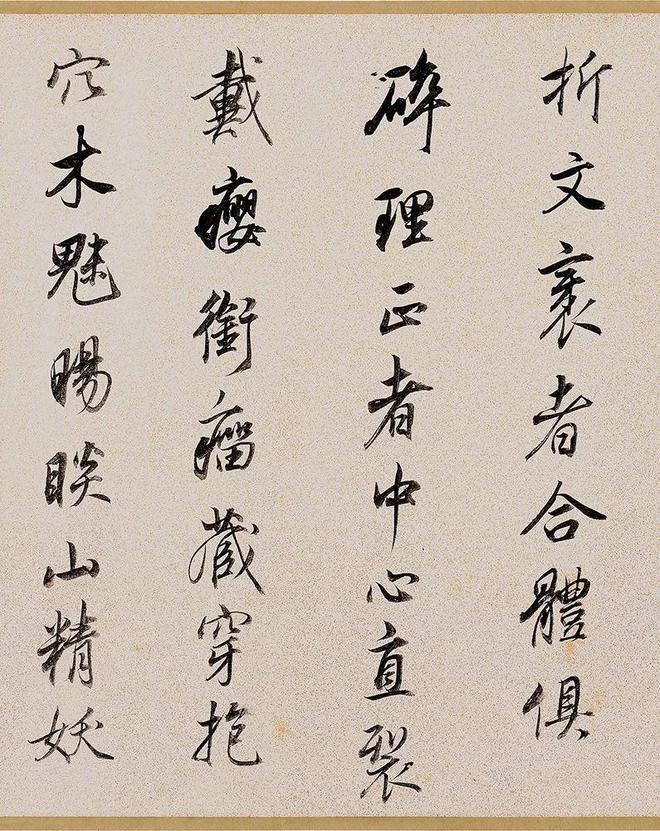 折文裏者合體俱
碎理正者中心直裂
戴癭銜瘤藏穿抱
穴木魅睗睒山精妖